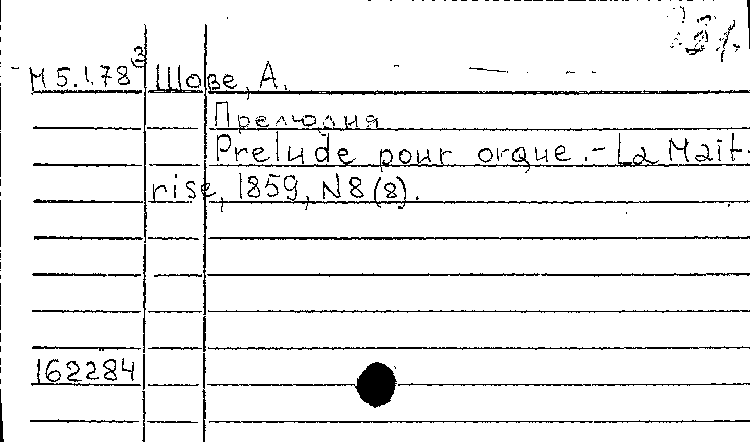 М 5.1.78(2) Шове, А.
Прелюдия
Prelude pour orgue.- La Mait-
rise, 1859, N8 (8).
162284